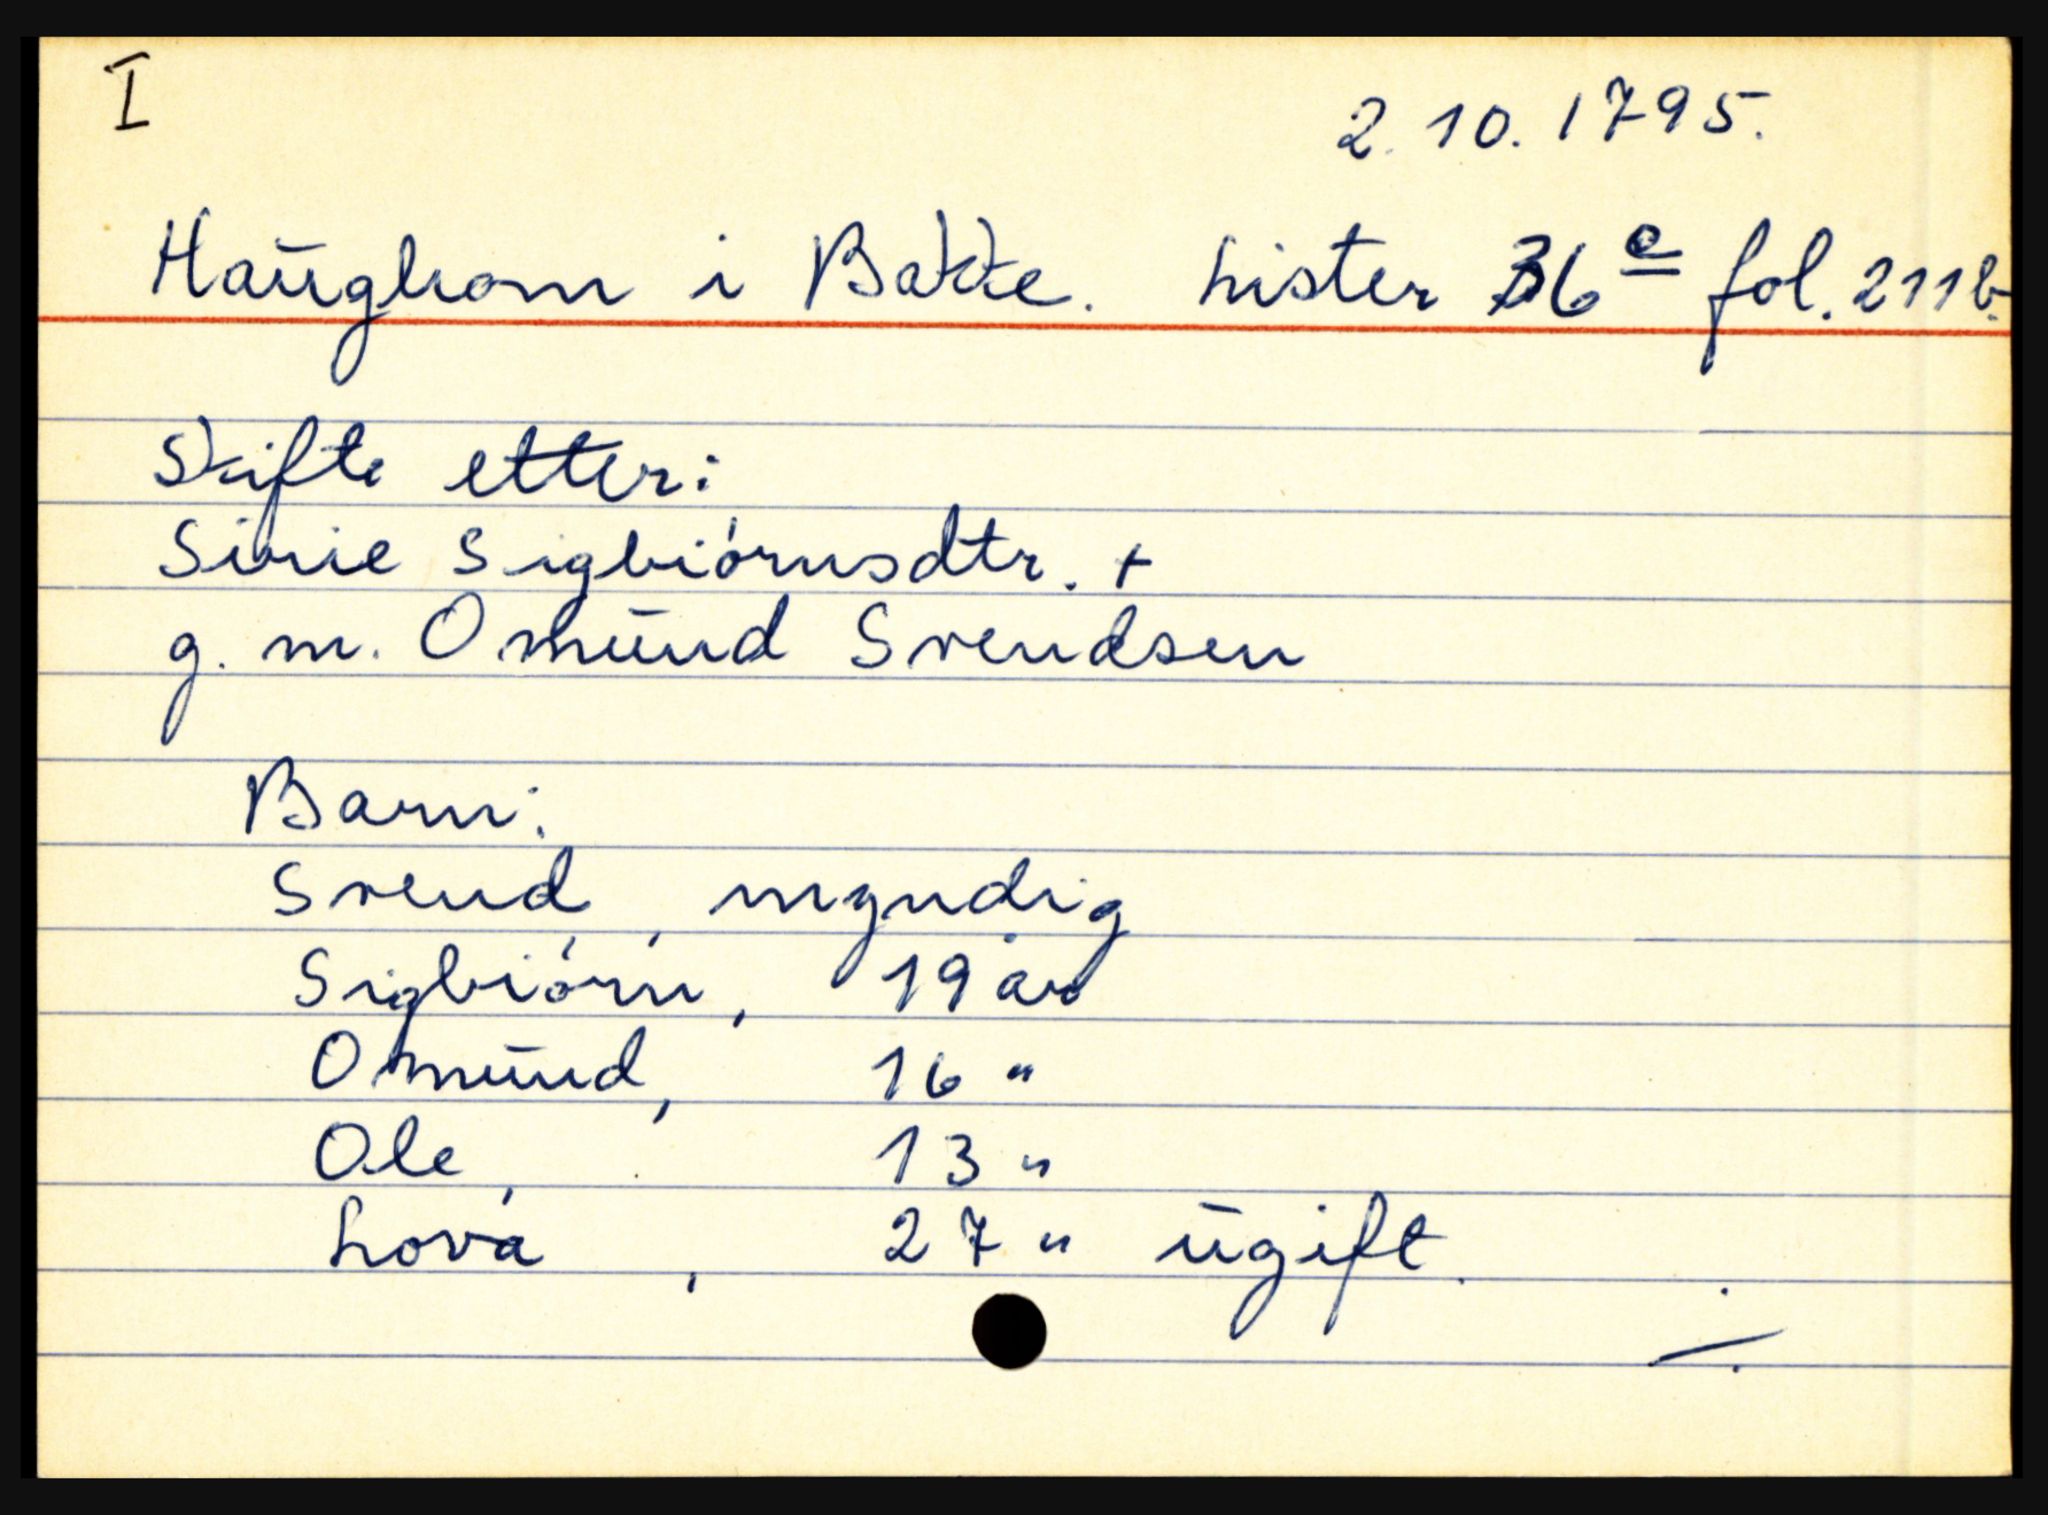 I
2.10.1795.
Haŭghom i Bakke. Lister 36 e fol. 211b.
Skifte etter:
Sirie Sigbiórnsdtr. +
g. m. Omŭnd Svendsen
Barn:
Svend, myndig
Sigbiórn, 19 år
Omŭnd, 16 "
Ole, 13 "
Lova, 27 " ŭgift.